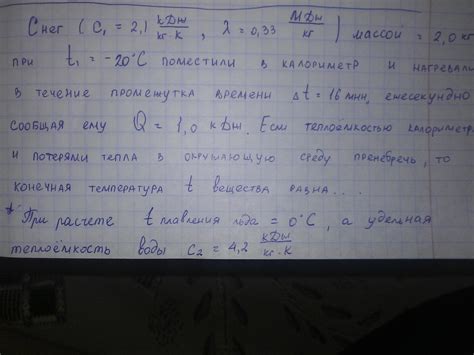 Снег ( C₁ = 2,1 кДж/кг·К , λ = 0,33 МДж/кг ) массой = 2,0 кг
при t₁ = -20°C поместили в калориметр и нагревали
в течение промежутка времени Δt = 16 мин, ежесекундно
сообщая ему Q = 1,0 кДж. Если теплоёмкостью калориметра
и потерями тепла в окружающую среду пренебречь, то
конечная температура t вещества равна...
* При расчете t плавления льда = 0°C, а удельная
теплоёмкость воды C₂ = 4,2 кДж/кг·К